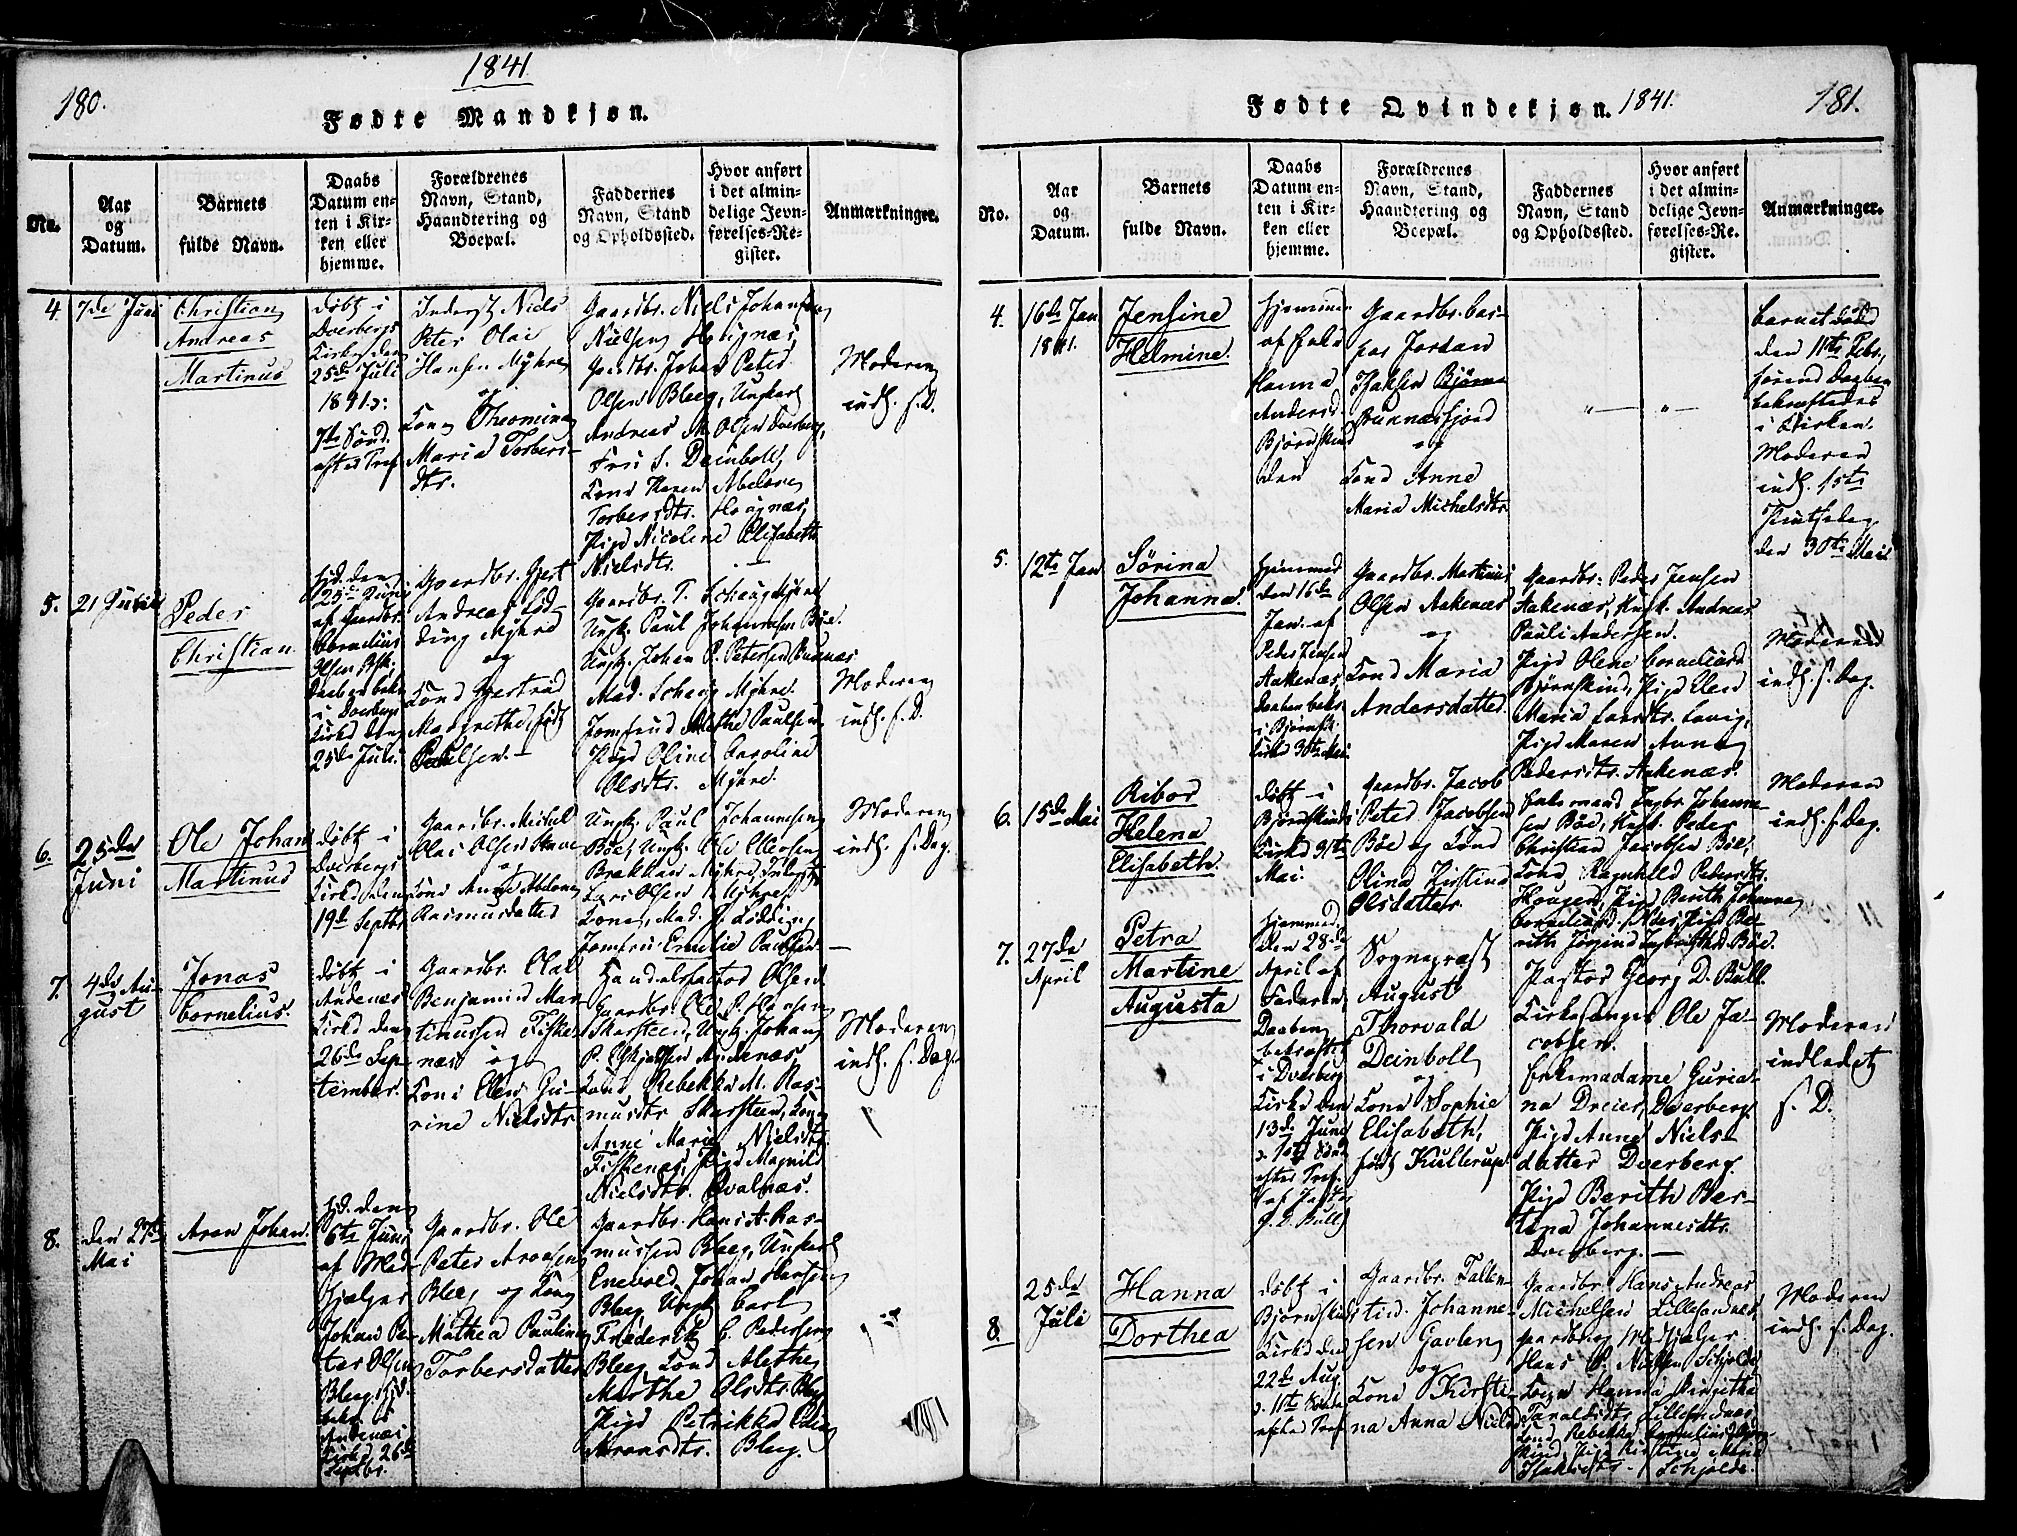 180.
1841
Fødte Mandkjøn.
No.
Aar
og
Datum.
Barnets
fulde Navn.
Daabs
Datum en-
ten i Kir-
ken eller
hjemme.
Forældrenes
Navn, Stand,
Haandtering og
Boepæl.
Faddernes
Navn, Stand
og Opholdssted.
Hvor anført
i det almin-
delige Jevn-
førelses-Re-
gister.
Anmærkninger.
4.
7de Juni
Christian
Andreas
Martinus
døbt i
Dverbergs
Kirke den
25de Juli
1841 ɔ:
7de Sønd.
efter Tref.
Inderst Niels
Peter Olai
Hansen Myhre
og
Kone Theomine
Maria Torbers-
dtr.
Gaardbr. Niels Johansen
Nielsen Høignæs,
Gaardbr. Johan Peter
Olsen Bleeg, Ungkarl
Andreas M. Olsen Dverberg,
Fru S. Deinboll,
Kone Karen Abelone
Torbersdtr. Høignæs,
Pige Nicoline Elisabeth
Nielsdtr.
Moderen
indl. s. D.
5.
21 Juni
Peder
Christian
hjd. den
25de Juni
af Gaardbr.
Cornelius
Olsen
Daaben bekr.
i Dverbergs
Kirke den
25de Juli.
Gaardbr. Gjert
Andreas Lod-
ding Myhre
og
Kone Gjertrud
Margrethe født
Paulsen.
Gaardbr. P. Schaug Myhre
Ungk. Paul Johannesen Böe.
Ungk. Johan P. Petersen
Mad. Schaug Myhre.
Jomfrue Mathe Paulsen
Pige Oline Caroline
Olsdtr. Myhre.
Moderen
indl. s. D.
6.
25de
Juni
Ole Johan
Martinus
døbt i
Dverbergs
Kirke den
19de Septbr.
Gaardbr. Michal
Olai Olsen Stave
og
Kone Anne Abelone
Rasmusdatter
Ungk. Paul Johannesen
Böe, Ungk. Ole Ellevsen
Brekkan Myhre,
Lars Olsen Myhre
Kone, Mad. P. Lödding
Jomfrue Emilie Paulsen
Moderen
indl. s. Dag.
7.
4de Au-
gust
Jonas
Cornelius.
døbt i
Andenæs
Kirke den
26de Sep-
tember.
Gaardbr. Olai
Benjamin Mar-
tinussen Fiske-
næs og
Kone Elen Gu-
rine Nielsdtr.
Handelsfactor Olsen
Gaardbr. Ole P. Hansen
Skarsteen, Ungk. Johan
P. Andenæs,
Kone Rebekka M. Ras-
musdtr Skarsteen, Kone
Anne Marie Nielsdtr.
Fiskenæs, Pige Magnild
Nielsdtr. Qvalnæs.
Moderen
indl. s. Dag.
8.
den 27de
Mai
Aron Johan.
hjd. den
6te Juni
af Med-
hjelper
Johan Pe-
ter Olsen
Bleeg.
bekr. i
Andenæs
Kirke 26de
Septbr.
Gaardbr. Ole
Peter Aronsen
Bleeg og Kone
Mathea Pauline
Torbersdatter
Gaardbr. Hans A. Ras-
mussen Bleeg, Ungkarl
Enevold Johan Hansen
Bleeg Ungk. Carl
Frederik C. Pedersen
Bleeg Kone Alethe
Marthe Olsdtr. Bleeg
Pige Petrikke Elen
Aronsdtr. Bleeg.
181.
Fødte Qvindekjøn. 1841.
No.
Aar
og
Datum.
Barnets
fulde Navn.
Daabs
Datum en-
ten i Kir-
ken eller
hjemme.
Forældrenes
Navn, Stand,
Haandtering og
Boepæl.
Faddernes
Navn, Stand
og Opholdssted.
Hvor anført
i det almin-
delige Jevn-
førelses-Re-
gister.
Anmærkninger.
4.
16de Jan
1841.
Jensine
Helmine.
hjemme
af
Hanna
Andersd.
Björnskind
den
Gaardbr. Cas-
par Jordan
Isaksen Björnn
og
Kone Anne
Maria Michelsdtr.
" — " —
Barnet døde
den 11te Febr.,
førend Daaben
bekræftedes
i Kirken.
Moderen
indl. 1ste
Pintsedag
den 30te Mai
5.
12te Jan
Sørina
Johanna.
hjemme
den 16de
Jan. af
Peder Jensen
Aakenæs
Daaben bekr.
i Bjørnsk.
Kirke 30te Mai
Gaardbr. Martinus
Olsen Aakenæs
og
Kone Maria
Andersdatter
Gaardbr. Peder Jensen
Aakenæs, Husk. Andreas
Pauli Andersen.
Pige Olene Corneliusd.
Bjørnskind, Pige Elen
Maria Larsdtr.
Pige Maren Anne
Pedersdtr. Aakenæs.
Moderen
indl. s. Dag.
6.
15de Mai
Ribor
Helena
Elisabeth.
døbt i
Bjørnskinds
Kirke 31te
Mai
Gaardbr. Jacob
Peter Jacobsen
Böe og Kone
Olina Kirstina
Olsdatter.
Enkemand Ingbr. Johanne-
sen Böe, Husk. Peder
Christian Jacobsen Böe,
Kone Ragnhild Pedersdtr.
Haugen, Pige Berith Johanne
Corneliusd. Pige Be-
rith Jørgine Böe.
Moderen
indl. s. Dag.
7.
27de
April
Petra
Martine
Augusta
hjemme
den 28de
April af
Faderen,
Daaben
bekræftet
i Dverberg
Kirke den
13de Juni
efter Tref.
af Pastor
G. D. Bull
Sognepræst
August
Thorvald
Deinboll
og
Kone Sophie
Elisabeth,
født Kullerup.
Pastor Georg D. Bull.
Kirkesanger Ole Ja-
cobsen.
Enkemadame Guria-
na Dreier, Dverberg.
Pige Anne Niels-
datter Dverberg.
Pige Berith Ber-
tina Johannesdtr.
Dverberg.
Moderen
indledet
s. D.
8.
25de
Juli
Hanna
Dorthea
døbt i
Bjørnskind
Kirke den
22de Aug.
ɔ. 11te
efter Tref
Gaardbr. Fallen-
tin Johanne-
sen Gavlen
og
Kone Kirsti-
na Anna Nielsd.
Gaardbr. Hans Andreas
Michelsen Lillesandnes,
Gaardbr. og Medhjelper
Hans P. Nielsen Schjolde
Kone Hanna Birgitha
Taraldsdtr. Lillesandnes
Kone Rebekka Corneliusd.
Isaksdtr. Schjolde.
Moderen
indl. s. Dag.